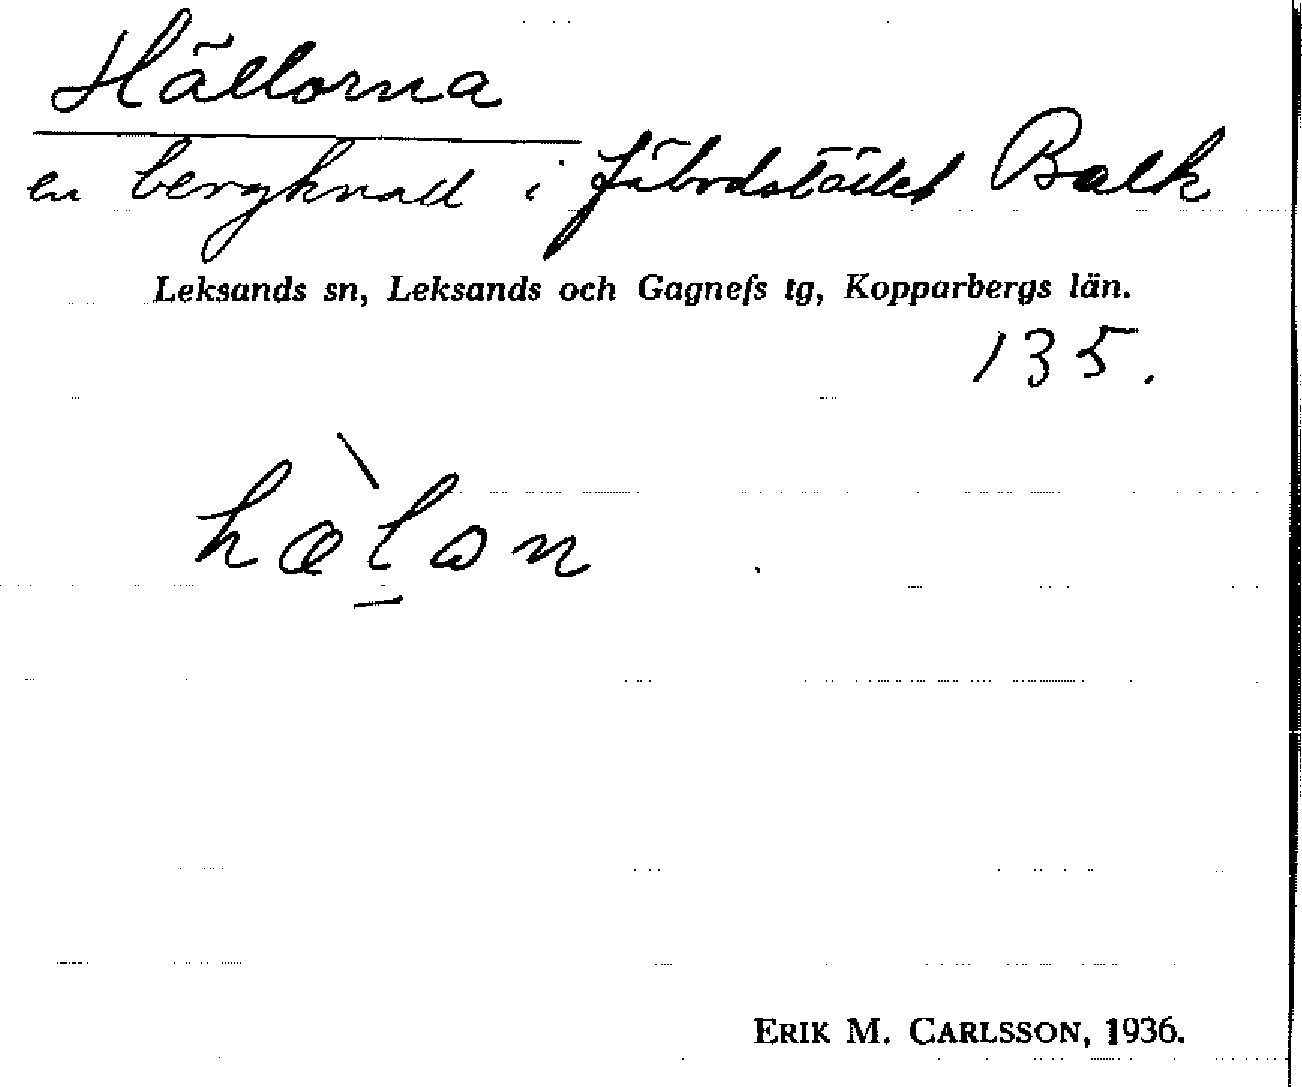 Hällorna
en bergknall i fäbodstället Balk
Leksands sn, Leksands och Gagnefs tg, Kopparbergs län.
135.
hæ̀l̠on
ERIK M. CARLSSON, 1936.